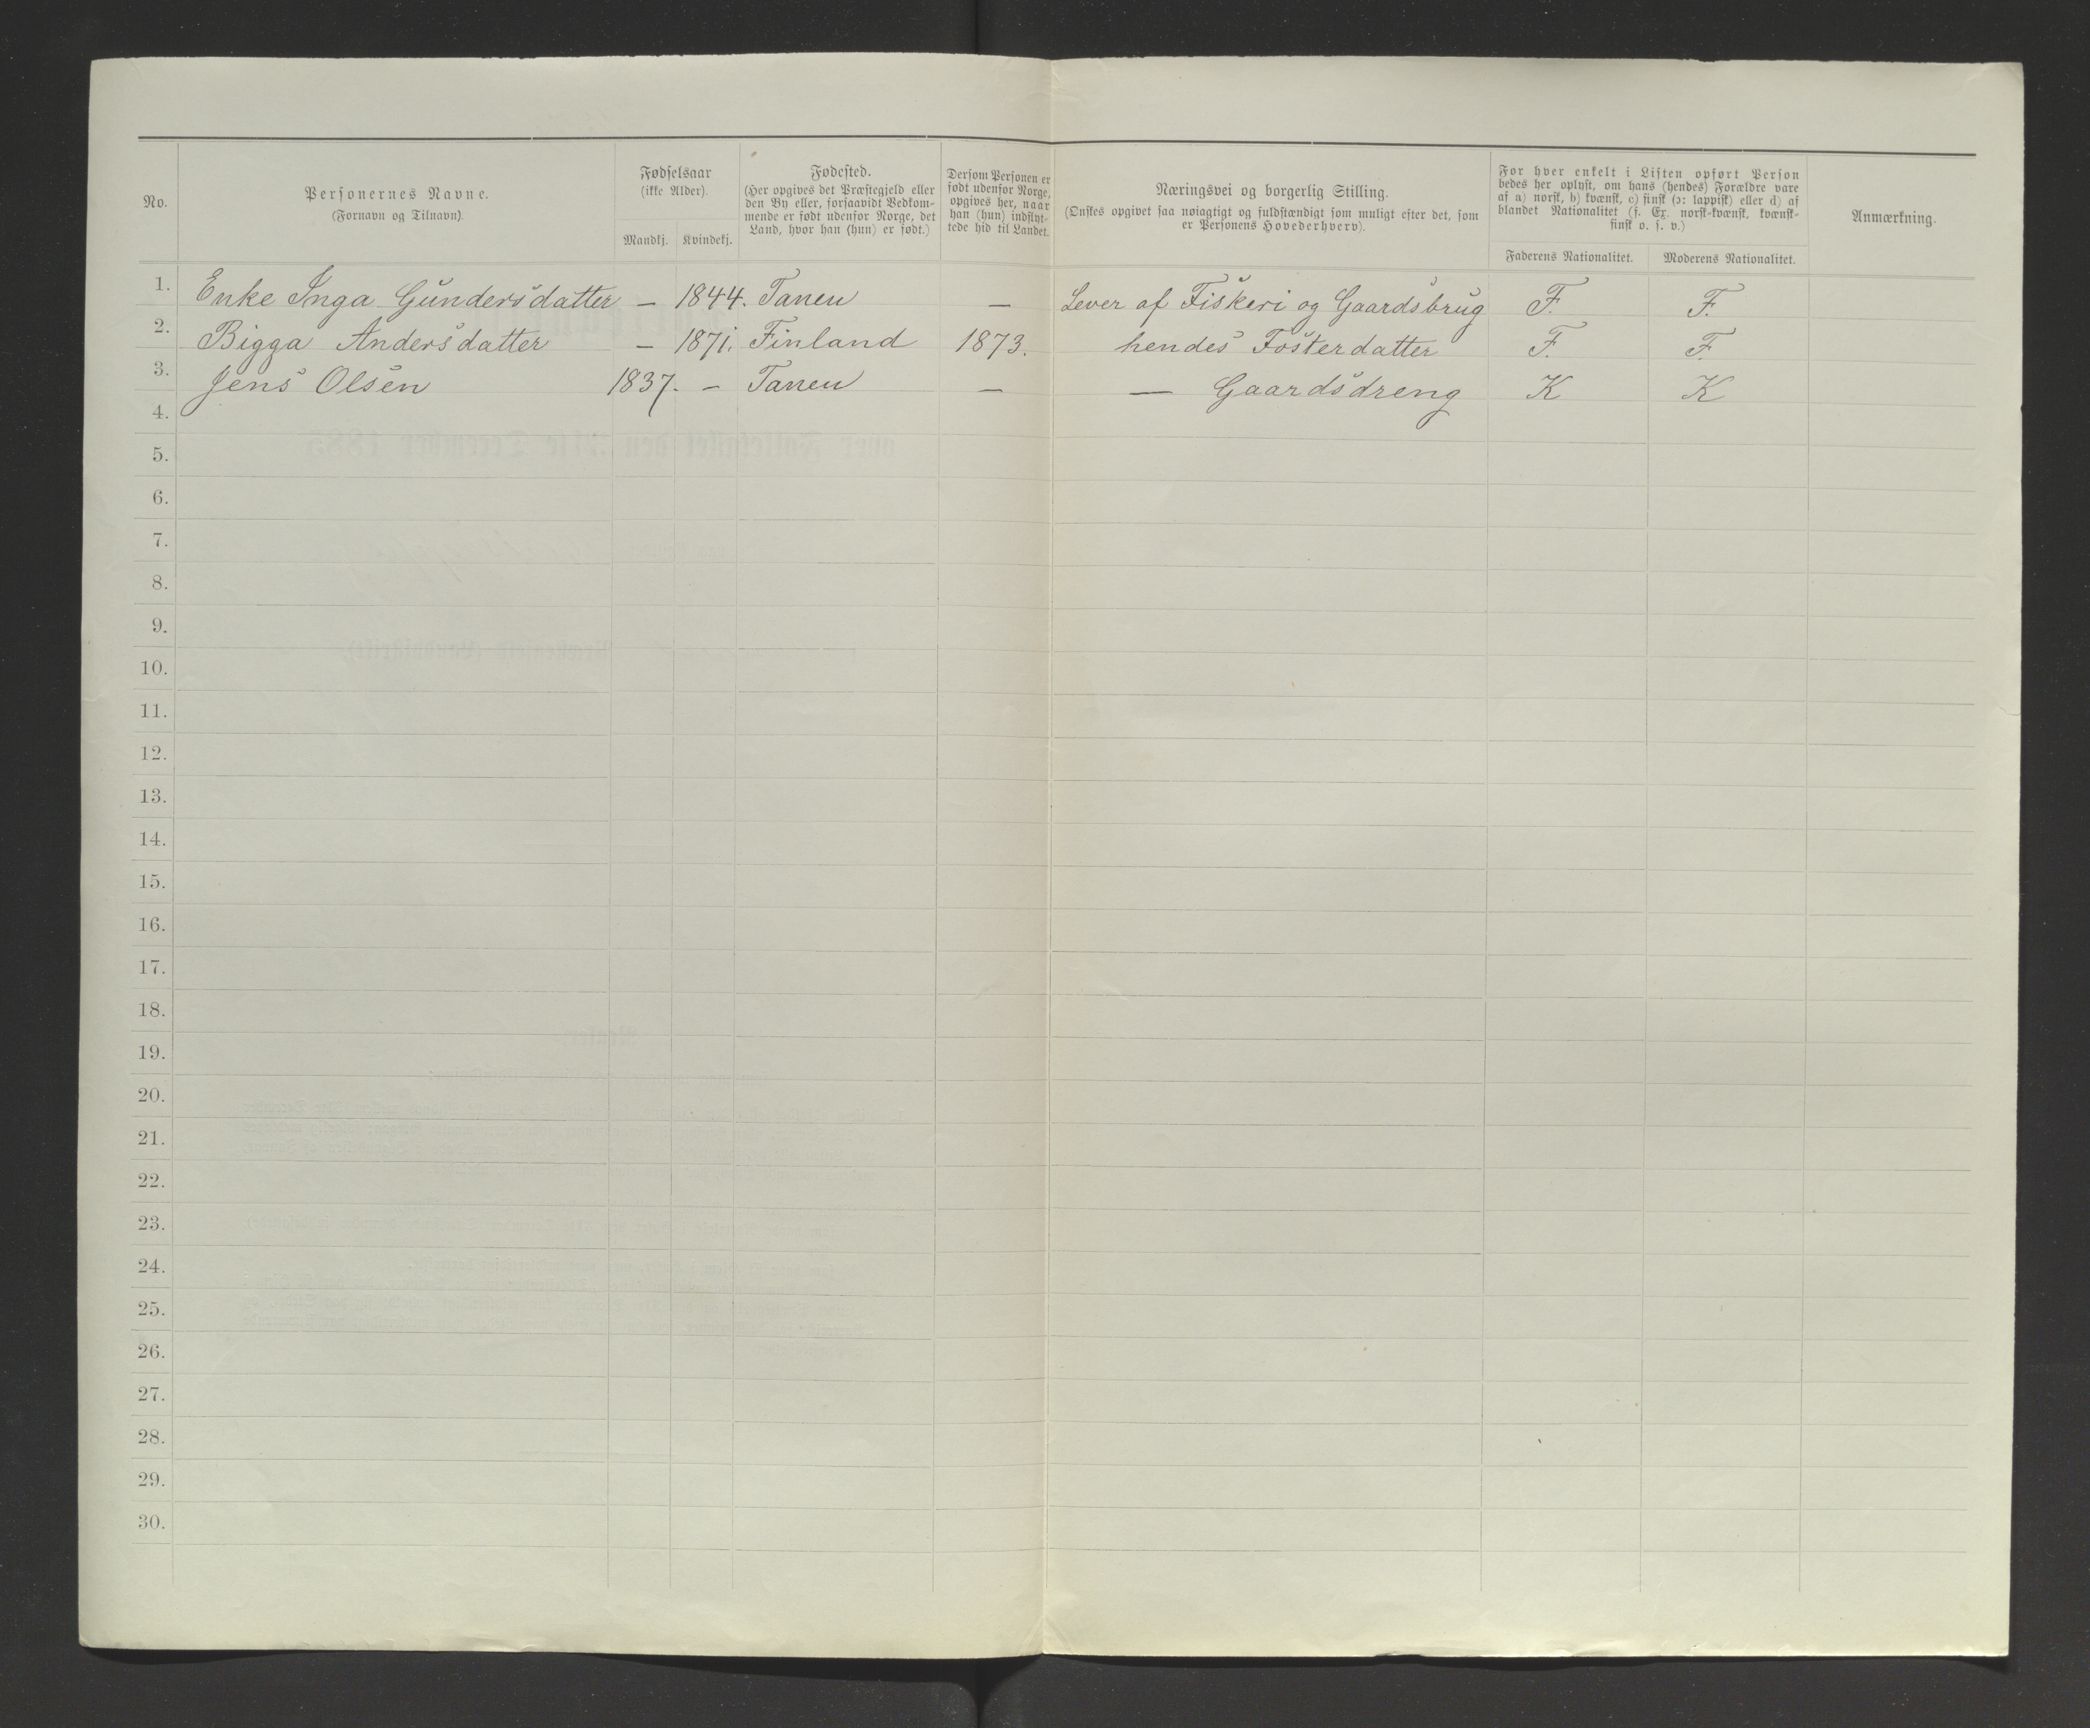 No.
Personernes Navne.
(Fornavn og Tilnavn).
Fødselsaar
(ikke Alder).
Mandkj.
Kvindekj.
Fødested.
(Her opgives det Præstegjeld eller
den By eller, forsaavidt Vedkom-
mende er født udenfor Norge, det
Land, hvor han (hun) er født.)
Dersom Personen er
født udenfor Norge,
opgives her, naar
han (hun) indflyt-
tede hid til Landet.
Næringsvei og borgerlig Stilling.
(Ønskes opgivet saa nøiagtigt og fuldstændigt som muligt efter det, som
er Personens Hovederhverv).
For hver enkelt i Listen opført Person
bedes her oplyst, om hans (hendes) Forældre vare
af a) norsk, b) kvænsk, c) finsk (ɔ: lappisk) eller d) af
blandet Nationalitet (f. Ex. norsk-kvænsk, kvænsk-
finsk o. s. v.)
Faderens Nationalitet.
Moderens Nationalitet.
Anmærkning.
1. Enke Inga Gundersdatter – 1844. Tanen – Lever af Fiskeri og Gaardsbrug F. F.
2. Bigga Andersdatter – 1871. Finland 1873. hendes Fosterdatter F. F.
3. Jens Olsen 1837. – Tanen – — Gaardsdreng K K
4.
5.
6.
7.
8.
9.
10.
11.
12.
13.
14.
15.
16.
17.
18.
19.
20.
21.
22.
23.
24.
25.
26.
27.
28.
29.
30.